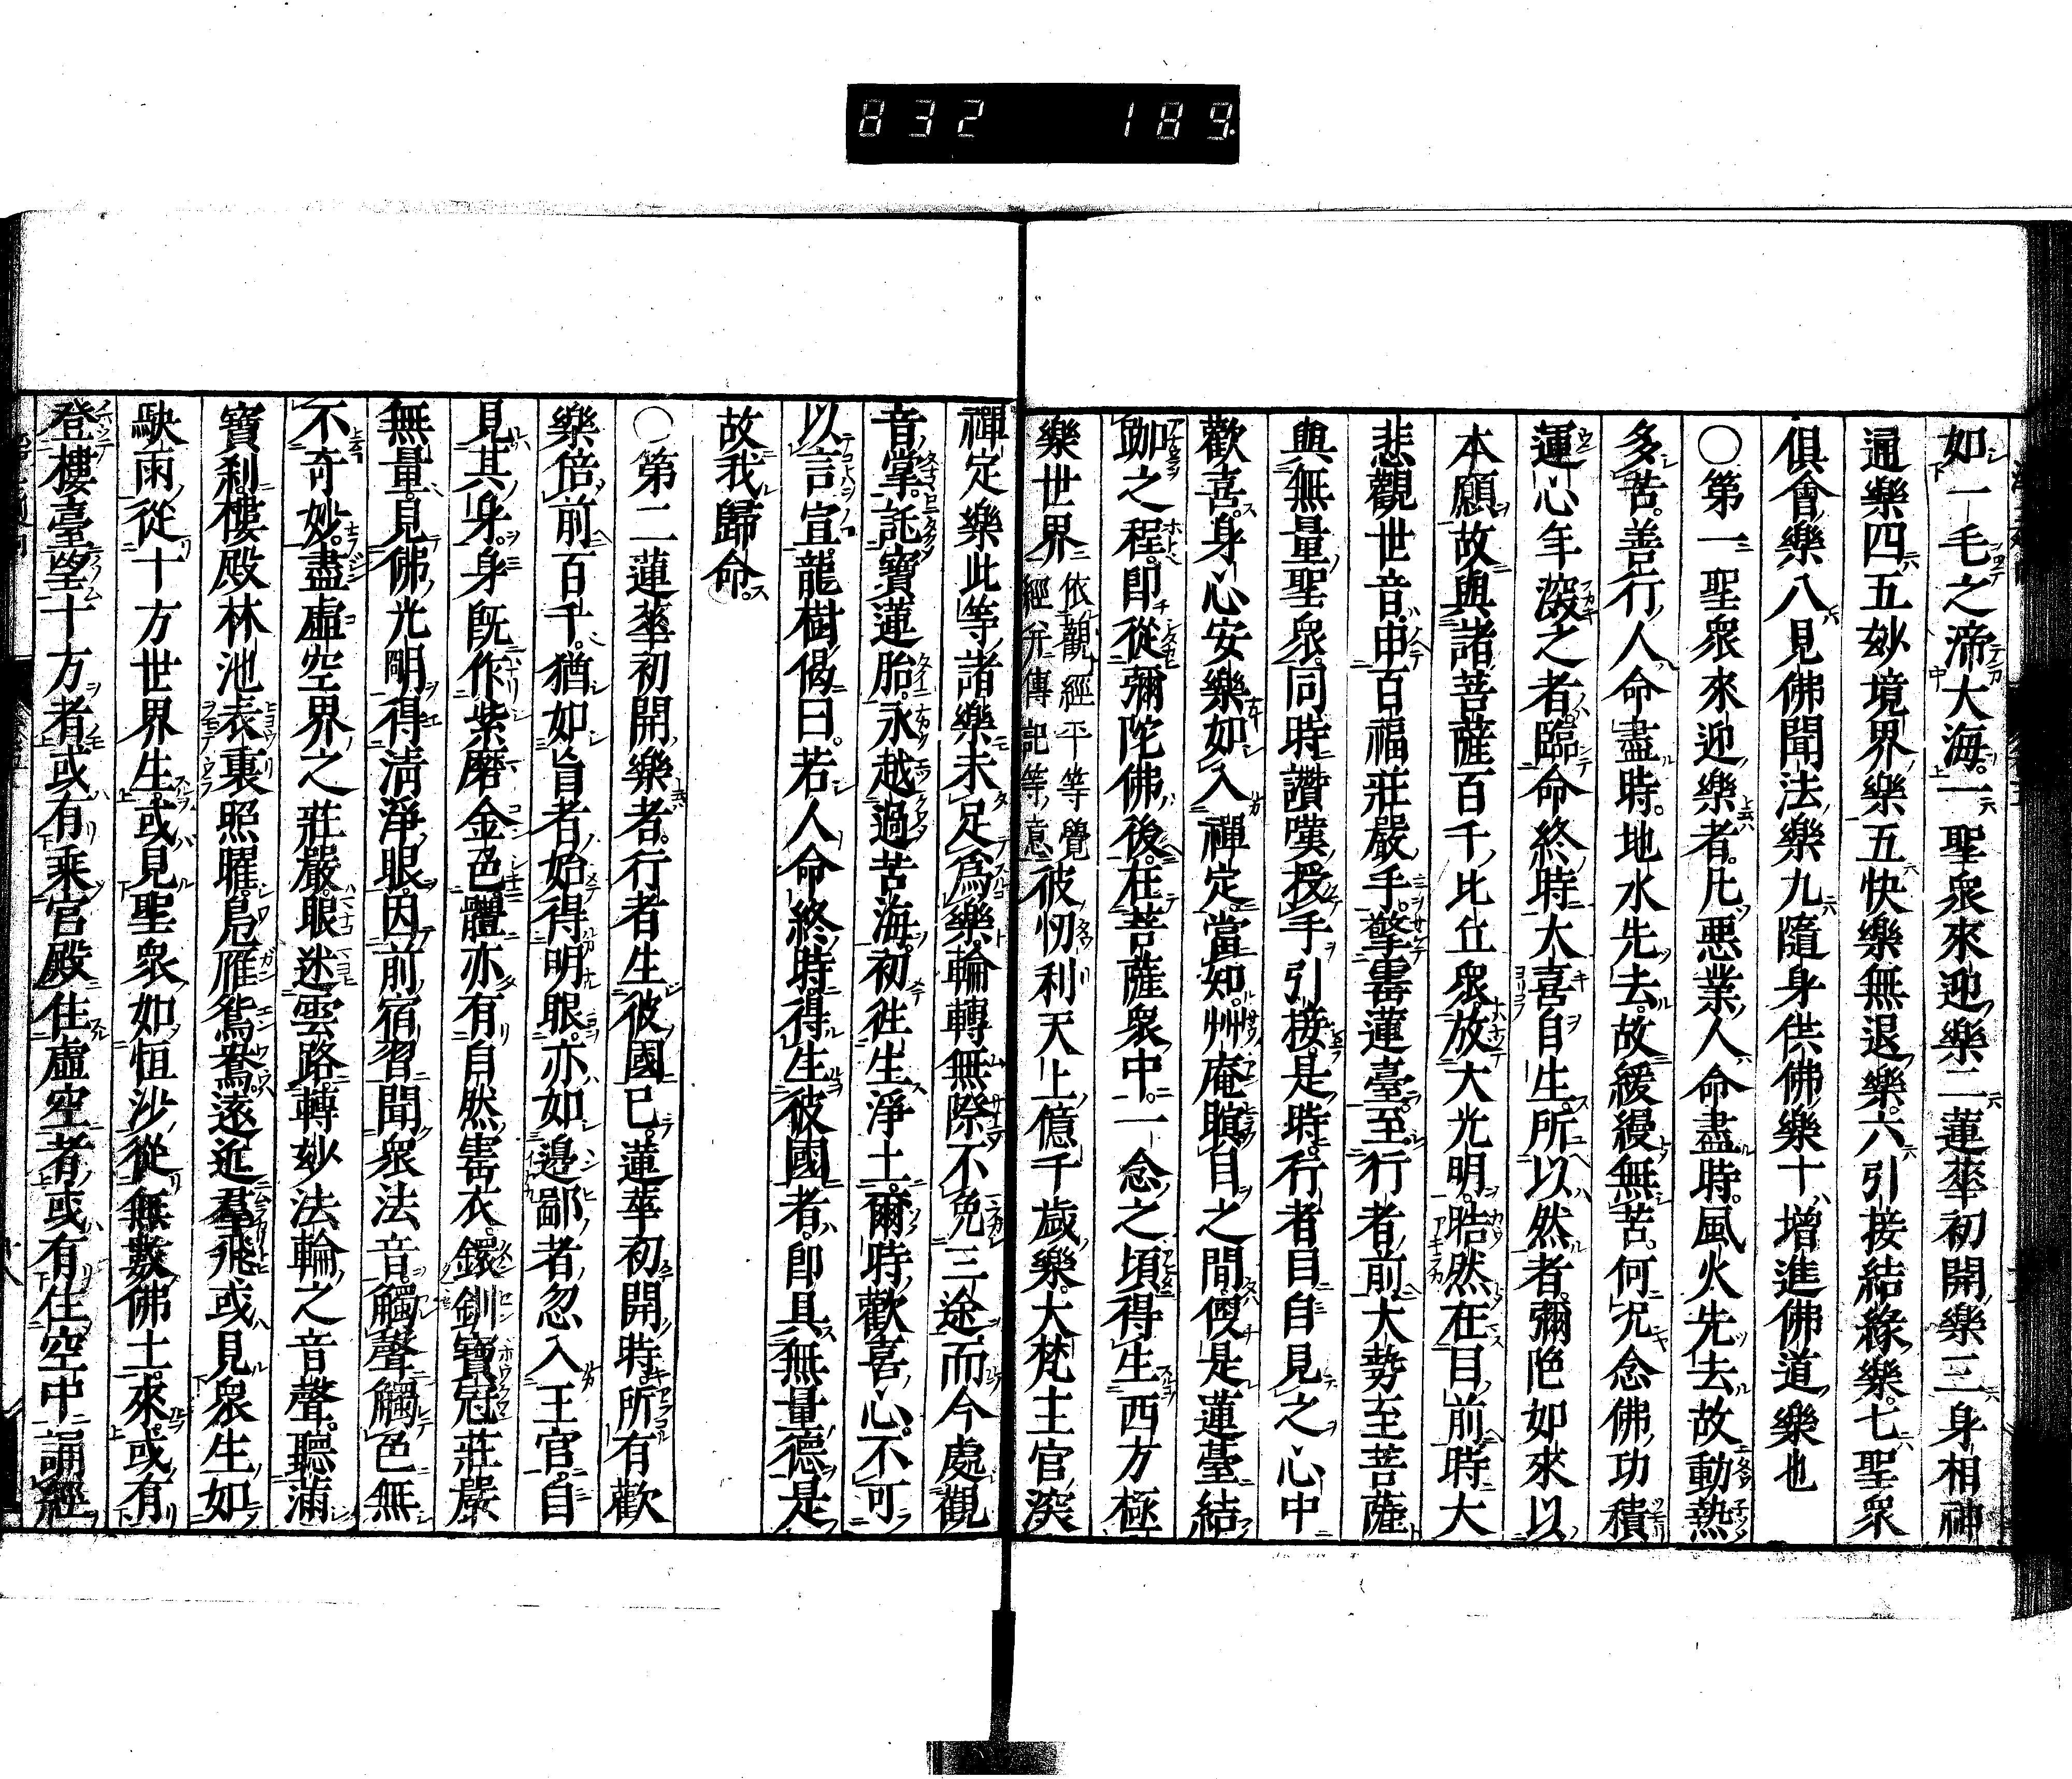 832 189
如一毛之渧大海。一聖衆來迎樂二蓮華初開樂三身相神
通樂四五妙境界樂五快樂無退樂。六引接結緣樂。七聖衆
俱會樂八見佛聞法樂九隨身供佛樂十增進佛道樂也
○第一聖衆來迎樂者。凡悪業人命盡時。風火先去故動熱
多苦。善行人命盡時。地水先去。故緩縵無苦。何况念佛功積
運心年深之者。臨命終時大喜自生。所以然者。彌陀如來以
本願故與諸菩薩百千比丘衆。放大光明。晧然在目前時大
悲觀世音。申百福莊嚴手。擎寳蓮臺。至行者前大勢至菩薩
與無量聖衆。同時讚嘆。授手引接。是時。行者目自見之心中
歡喜。身心安樂如入禪定當知。艸庵瞑目之間便是蓮臺結
跏之程。即從彌陀佛後。在菩薩衆中。一念之頃得生西方極
樂世界依觀經平等覺
經并傳記等意彼忉利天上億千歲樂。大梵王宮深
禪定樂此等諸樂未足爲樂。輪轉無際不免三途而今處觀
音掌。託寳蓮胎。永越過苦海。初徃生淨土。爾時歡喜心。不可
以言宣。龍樹偈曰。若人命終時。得生彼國者。即具無量德是
故我歸命。
○第二蓮華初開樂者。行者生彼國已。蓮華初開時。所有歡
樂倍前百千。猶如盲者始得明眼。亦如邊鄙者忽入王宮。自
見其身。身既作紫磨金色體亦有自然寳衣。鐶釧寳冠莊嚴
無量。見佛光明得清淨眼。因前宿習聞衆法音。觸聲觸色無
不奇妙。盡虛空界之莊嚴。眼迷雲路。轉妙法輪之音聲。聽滿
寶刹。樓殿林池。表裏照曜。鳧雁鴛鴦遠近羣飛或見衆生如
駃雨從十方世界生。或見聖衆如恒沙從無數佛土來。或有
登樓臺望十方者或有乘宮殿住虛空者或有住空中誦經